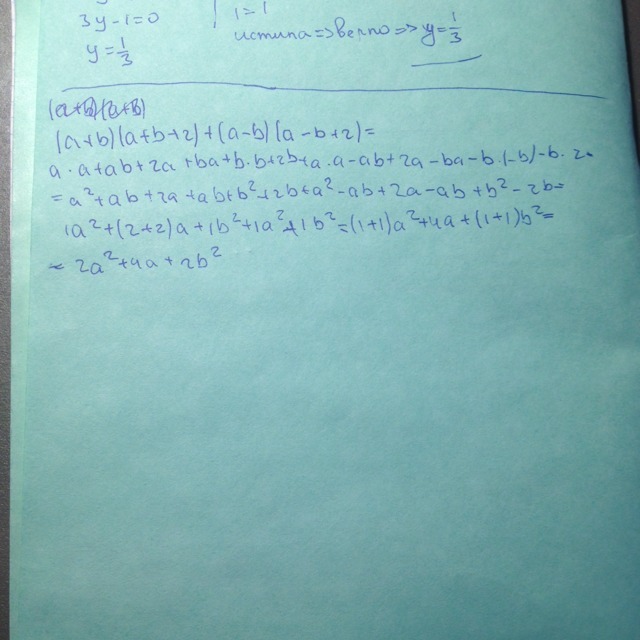 3y-1=0
1=1
истина=>верно=>y=1/3
y=1/3
(a+b)(a+b+2)+(a-b)(a-b+2)=
a·a+ab+2a+ba+b·b+2b+a·a-ab+2a-ba-b·(-b)-b·2=
=a²+ab+2a+ab+b²+2b+a²-ab+2a-ab+b²-2b=
1a²+(2+2)a+1b²+1a²+1b²=(1+1)a²+4a+(1+1)b²=
=2a²+4a+2b²